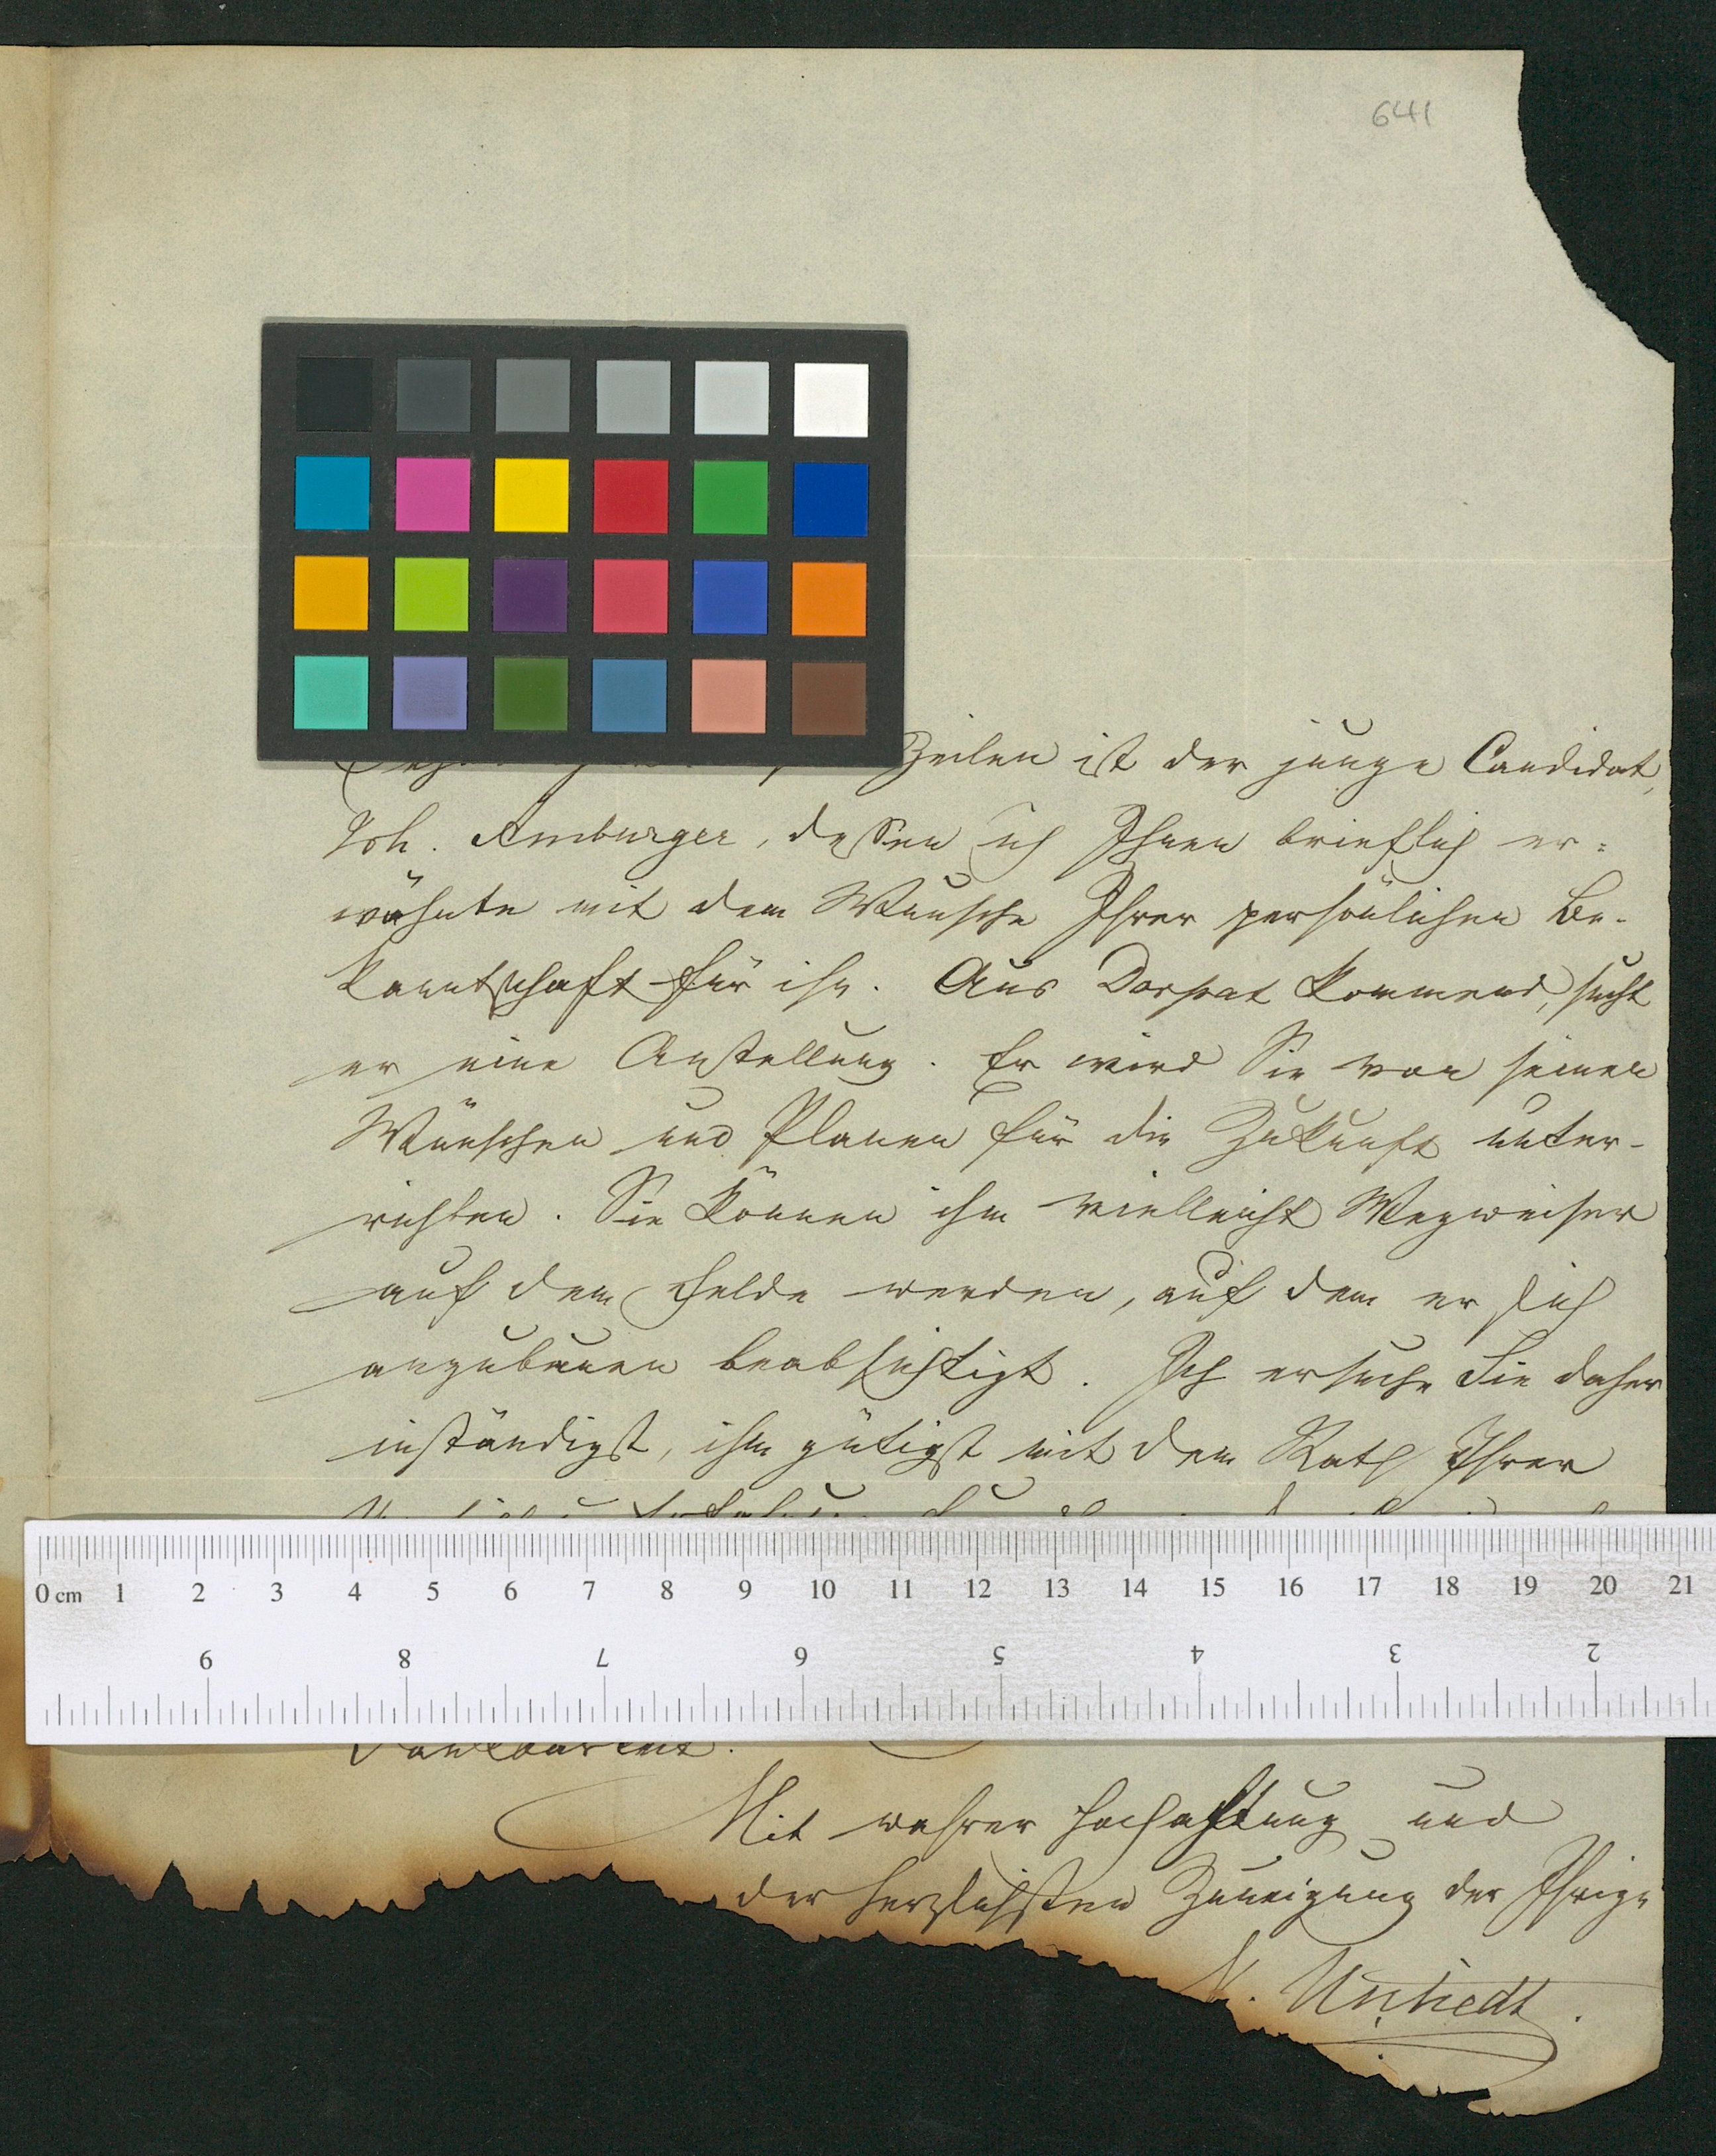 641
Zeilen ist der junge Candidat,
Joh. Amburger, dessen ich Ihnen brieflich er=
wähnte mit dem Wunsche Ihrer persönlichen Be-
kanntschaft für ihn. Aus Dorpat kommend, sucht
er eine Anstellung. Er wird Sie von seinen
Wünschen und Planen für die Zukunft unter-
richten. Sie können ihm vielleicht Wegweiser
auf dem Felde werden, auf dem er sich
anzubauen beabsichtigt. Ich ersuche Sie daher
inständigst, ihm gütigst mit dem Rath Ihrer
0 cm 1 2 3 4 5 6 7 8 9 10 11 12 13 14 15 16 17 18 19 20 21
9 8 7 6 5 4 3 2
Mit wahrer Hochachtung und
der herzlichsten Zuneigung der Ihrige